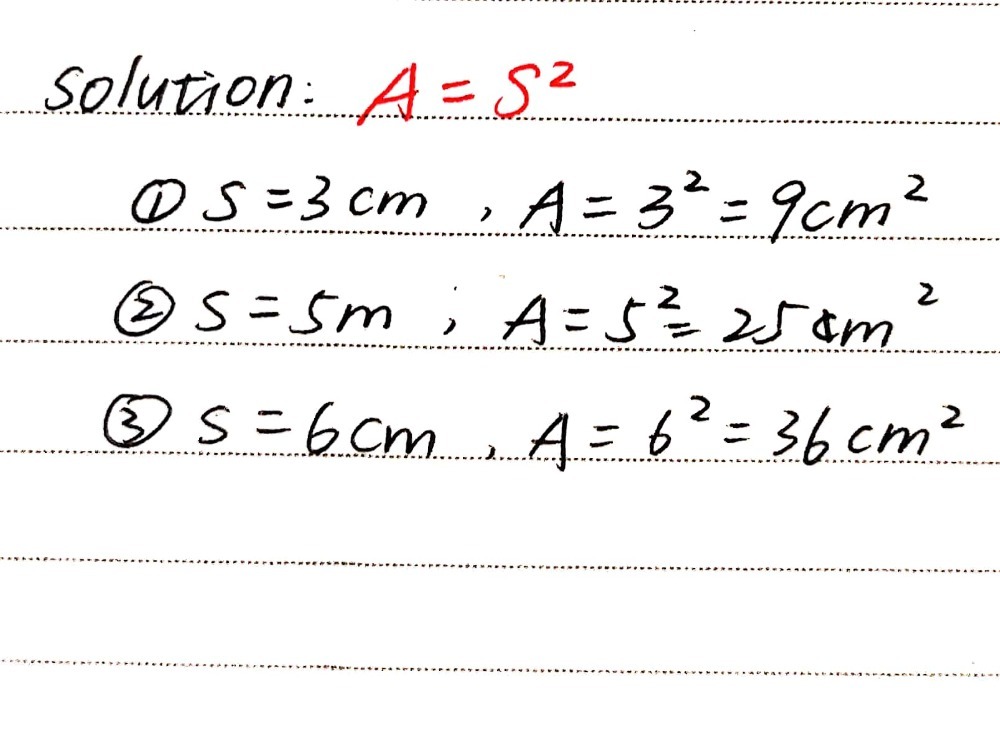 Solution: A = S²
① S = 3 cm , A = 3² = 9cm²
② S = 5m ; A = 5² = 25 m²
③ S = 6cm , A = 6² = 36 cm²